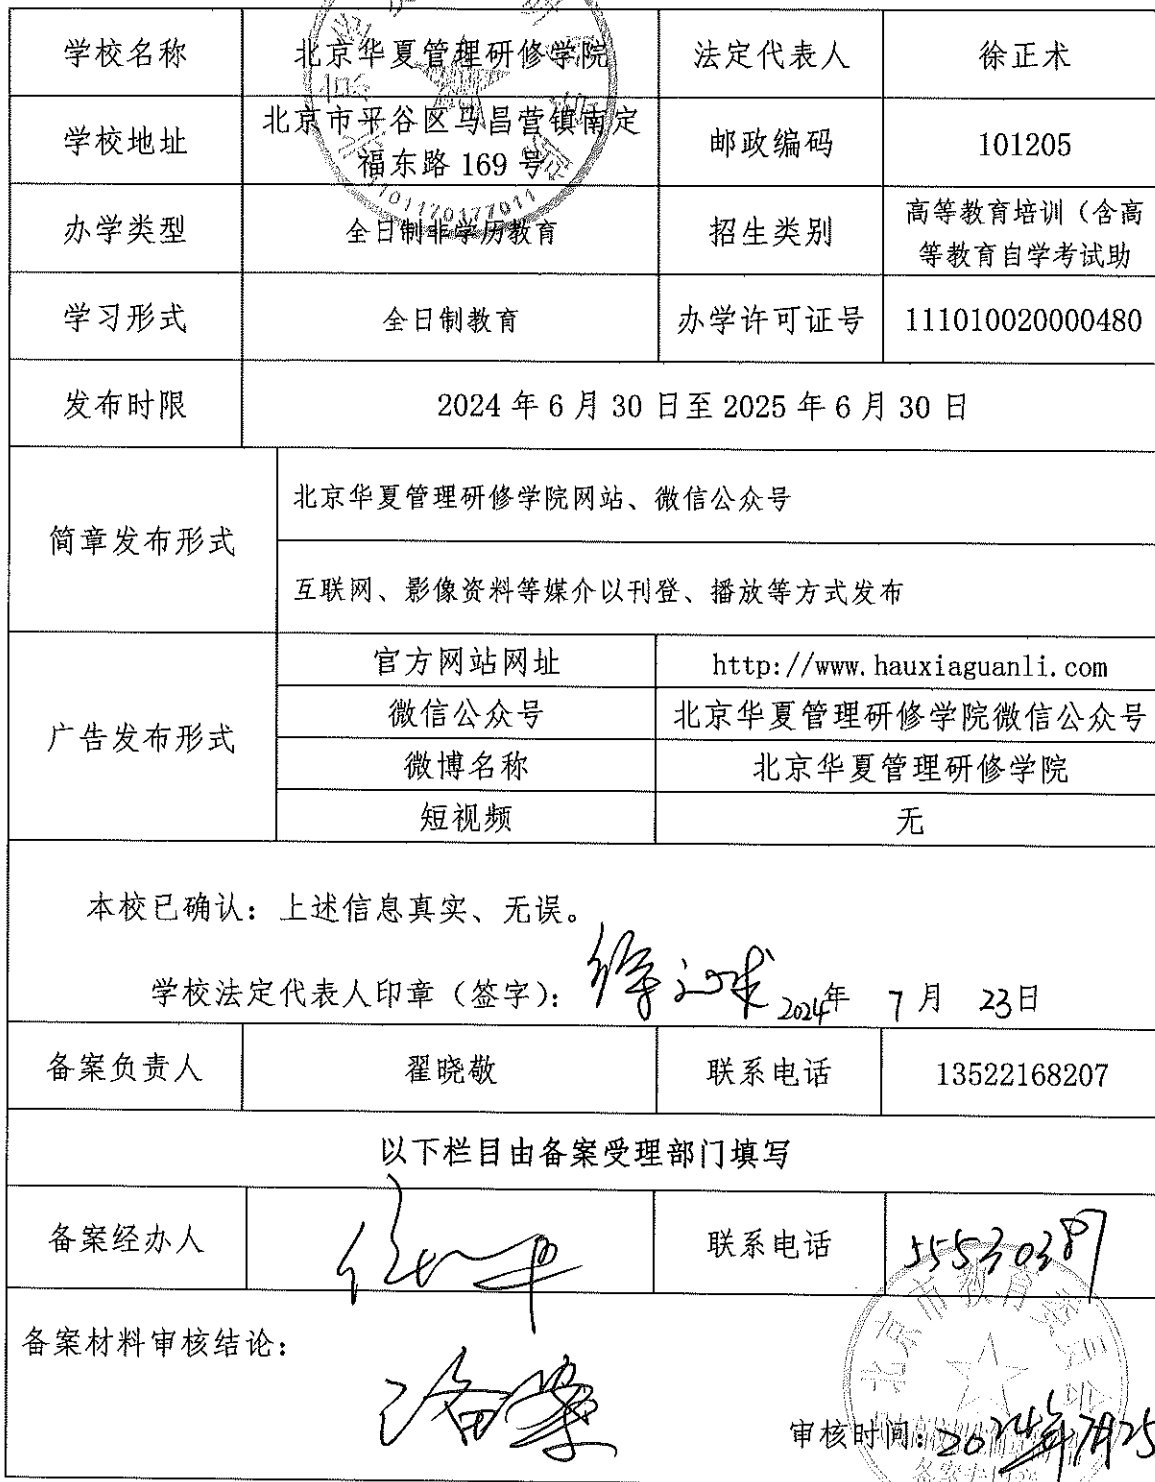 学校名称 北京华夏管理研修学院 法定代表人 徐正术
学校地址 北京市平谷区马昌营镇南定
福东路 169 号 邮政编码 101205
办学类型 全日制非学历教育 招生类别 高等教育培训（含高
等教育自学考试助
学习形式 全日制教育 办学许可证号 111010020000480
发布时限 2024 年 6 月 30 日至 2025 年 6 月 30 日
简章发布形式 北京华夏管理研修学院网站、微信公众号
互联网、影像资料等媒介以刊登、播放等方式发布
广告发布形式 官方网站网址 http://www.hauxiaguanli.com
微信公众号 北京华夏管理研修学院微信公众号
微博名称 北京华夏管理研修学院
短视频 无
本校已确认：上述信息真实、无误。
学校法定代表人印章（签字）： 徐正术 2024年 7 月 23日
备案负责人 翟晓敬 联系电话 13522168207
以下栏目由备案受理部门填写
备案经办人 联系电话 55530387
备案材料审核结论：
已备案
审核时间：2024年7月25
北京市教育委员会
1101170177011